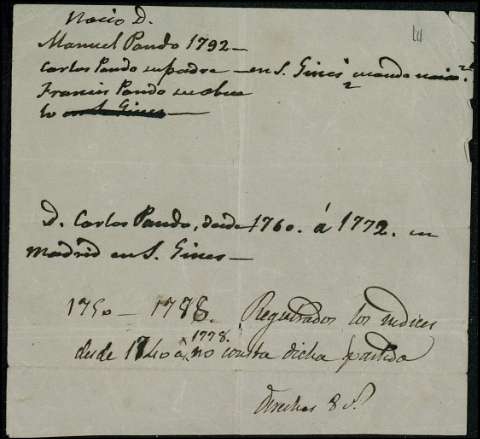 Nacio D.
Manuel Pando 1792 —
Carlos Pando su padre — en S. Gines cuando nacio
Francisco Pando su abue
lo en S. Gines —
D. Carlos Pando, desde 1760. á 1772. en
Madrid en S. Gines —
1750 — 1778. Registrados los indices
desde 1740 a 1778. no consta dicha partida
derechos 8